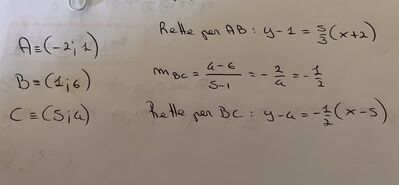 A≡(-2;1)
B≡(1;6)
C≡(5;4)
Retta per AB: y-1 = 5/3 (x+2)
m_BC = (4-6)/(5-1) = -2/4 = -1/2
Retta per BC: y-4 = -1/2 (x-5)